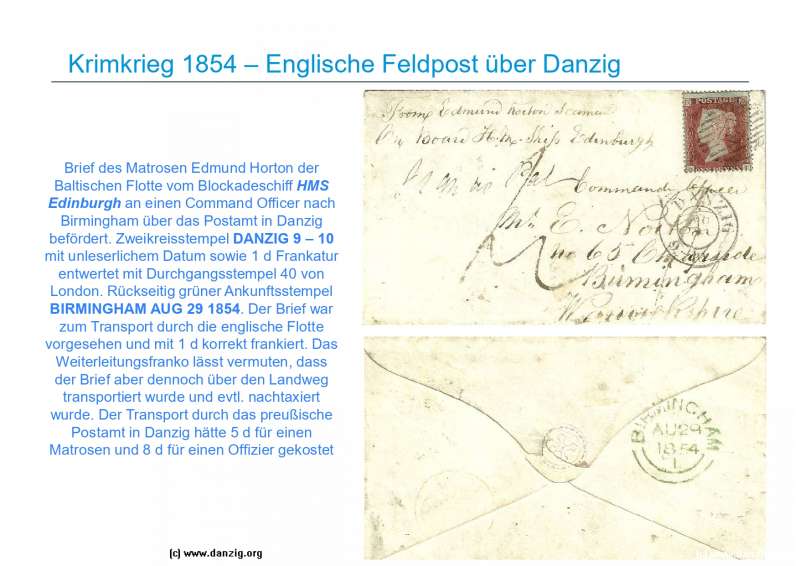 Krimkrieg 1854 – Englische Feldpost über Danzig
Brief des Matrosen Edmund Horton der
Baltischen Flotte vom Blockadeschiff HMS
Edinburgh an einen Command Officer nach
Birmingham über das Postamt in Danzig
befördert. Zweikreisstempel DANZIG 9 – 10
mit unleserlichem Datum sowie 1 d Frankatur
entwertet mit Durchgangsstempel 40 von
London. Rückseitig grüner Ankunftsstempel
BIRMINGHAM AUG 29 1854. Der Brief war
zum Transport durch die englische Flotte
vorgesehen und mit 1 d korrekt frankiert. Das
Weiterleitungsfranko lässt vermuten, dass
der Brief aber dennoch über den Landweg
transportiert wurde und evtl. nachtaxiert
wurde. Der Transport durch das preußische
Postamt in Danzig hätte 5 d für einen
Matrosen und 8 d für einen Offizier gekostet
(c) www.danzig.org
From Edmund Horton Seaman
On Board H.M. Ship Edinburgh
POSTAGE
Commanding
DANZIG
Mr E. Norton
no 65 Cheapside
Birmingham
BIRMINGHAM
AU 29
1854